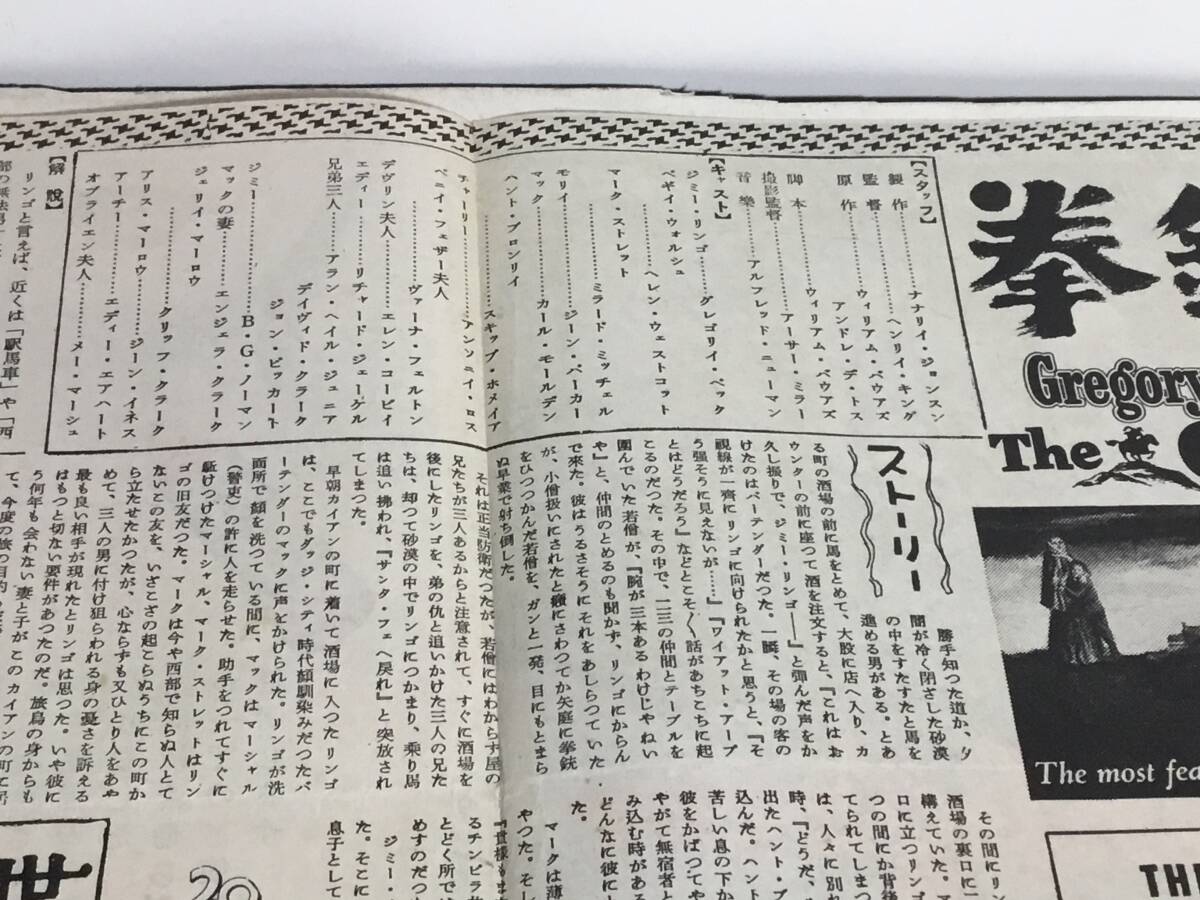 拳
Gregory
The
The most fea
THE
【スタッフ】
製作………ナナリイ・ジョンスン
監督………ヘンリイ・キング
原作………ウィリアム・バウアズ
アンドレ・デ・トス
脚本………ウィリアム・バウアズ
撮影監督………アーサー・ミラー
音樂………アルフレッド・ニューマン
【キャスト】
ジミー・リンゴ………グレゴリイ・ペック
ペギイ・ウォルシュ
………ヘレン・ウェストコット
マーク・ストレット
………ミラード・ミッチェル
モリイ………ジーン・パーカー
マック………カール・モールデン
ハント・ブロンリイ
………スキップ・ホメイア
チャーリー………アンソニイ・ロス
ペニイ・フェザー夫人
………ヴァーナ・フェルトン
デヴリン夫人………エレン・コービイ
エディー………リチャード・ジェーケル
兄弟三人………アラン・ヘイル・ジュニア
デイヴィド・クラーク
ジョン・ピッカート
ジミー………B・G・ノーマン
マックの妻………エンジェラ・クラーク
ジェリイ・マーロウ
………クリッフ・クラーク
アリス・マーロウ………ジーン・イネス
アーチー………エディー・エアハート
オブライエン夫人………メー・マーシュ
【解說】
リンゴと言えば、近くは「駅馬車」や「西
ストーリー
勝手知つた道か、夕
闇が冷く閉ざした砂漠
の中をすたすたと馬を
進める男がある。とあ
る町の酒場の前に馬をとめて、大股に店へ入り、カ
ウンターの前に座つて酒を注文すると、『これはお
久し振りで、ジミー・リンゴ――』と弾んだ声をか
けたのはバーテンダーだつた。一瞬、その場の客の
視線が一齊にリンゴに向けられたかと思うと、『そ
う強そうに見えないが……』『ワイアット・アープ
とはどうだろう』などとこそ〱話があちこちに起
こるのだつた。その中で、二三の仲間とテーブルを
囲んでいた若僧が、『腕が三本あるわけじやねい
や』と、仲間のとめるのも聞かず、リンゴにからん
で來た。彼はうるさそうにそれをあしらつていた
が、小僧扱いにされたと癪にさわつてか矢庭に拳銃
をひつつかんだ若僧を、ガンと一発、目にもとまら
ぬ早業で射ち倒した。
それは正当防衛だつたが、若僧にはわからず屋の
兄たちが三人あるからと注意されて、すぐに酒場を
後にしたリンゴを、弟の仇と追いかけた三人の兄た
ちは、却つて砂漠の中でリンゴにつかまり、乗り馬
は追い拂われ、『サンタ・フェへ戻れ』と突放され
てしまつた。
早朝カイアンの町に着いて酒場に入つたリンゴ
は、ここでもダッジ・シティ時代顔馴染みだつたバ
ーテンダーのマックに声をかけられた。リンゴが洗
面所で顔を洗つている間に、マックはマーシャル
（警吏）の許に人を走らせた。助手をつれてすぐに
駈けつけたマーシャル、マーク・ストレットはリン
ゴの旧友だつた。マークは今や西部で知らぬ人とて
ないこの友を、いざこざの起こらぬうちにこの町か
ら立たせたかつたが、心ならずも又ひとり人をあや
めて、三人の男に付け狙らわれる身の憂さを訴える
最も良い相手が現れたとリンゴは思つた。いや彼に
はもつと切ない要件があつたのだ。旅鳥の身からも
う何年も会わない妻と子がこのカイアンの町に居
て、今度の旅の目的
その間にリン
酒場の裏口に二
構えていた。マ
ロに立つリンゴ
つの間にか背後
てられてしまつ
は、人々に別れ
時、『どうだ、ハ
出たハント・ブ
込んだ。ハント
苦しい息の下か
彼をかばつてや
やがて無宿者と
み込む時がある
どんなに彼にと
た。
マークは薄
やつた。そし
『貫様もま
るチンピラ
とどく所で
めすのだつ
ジミー・
た。そこに
息子として
世
20